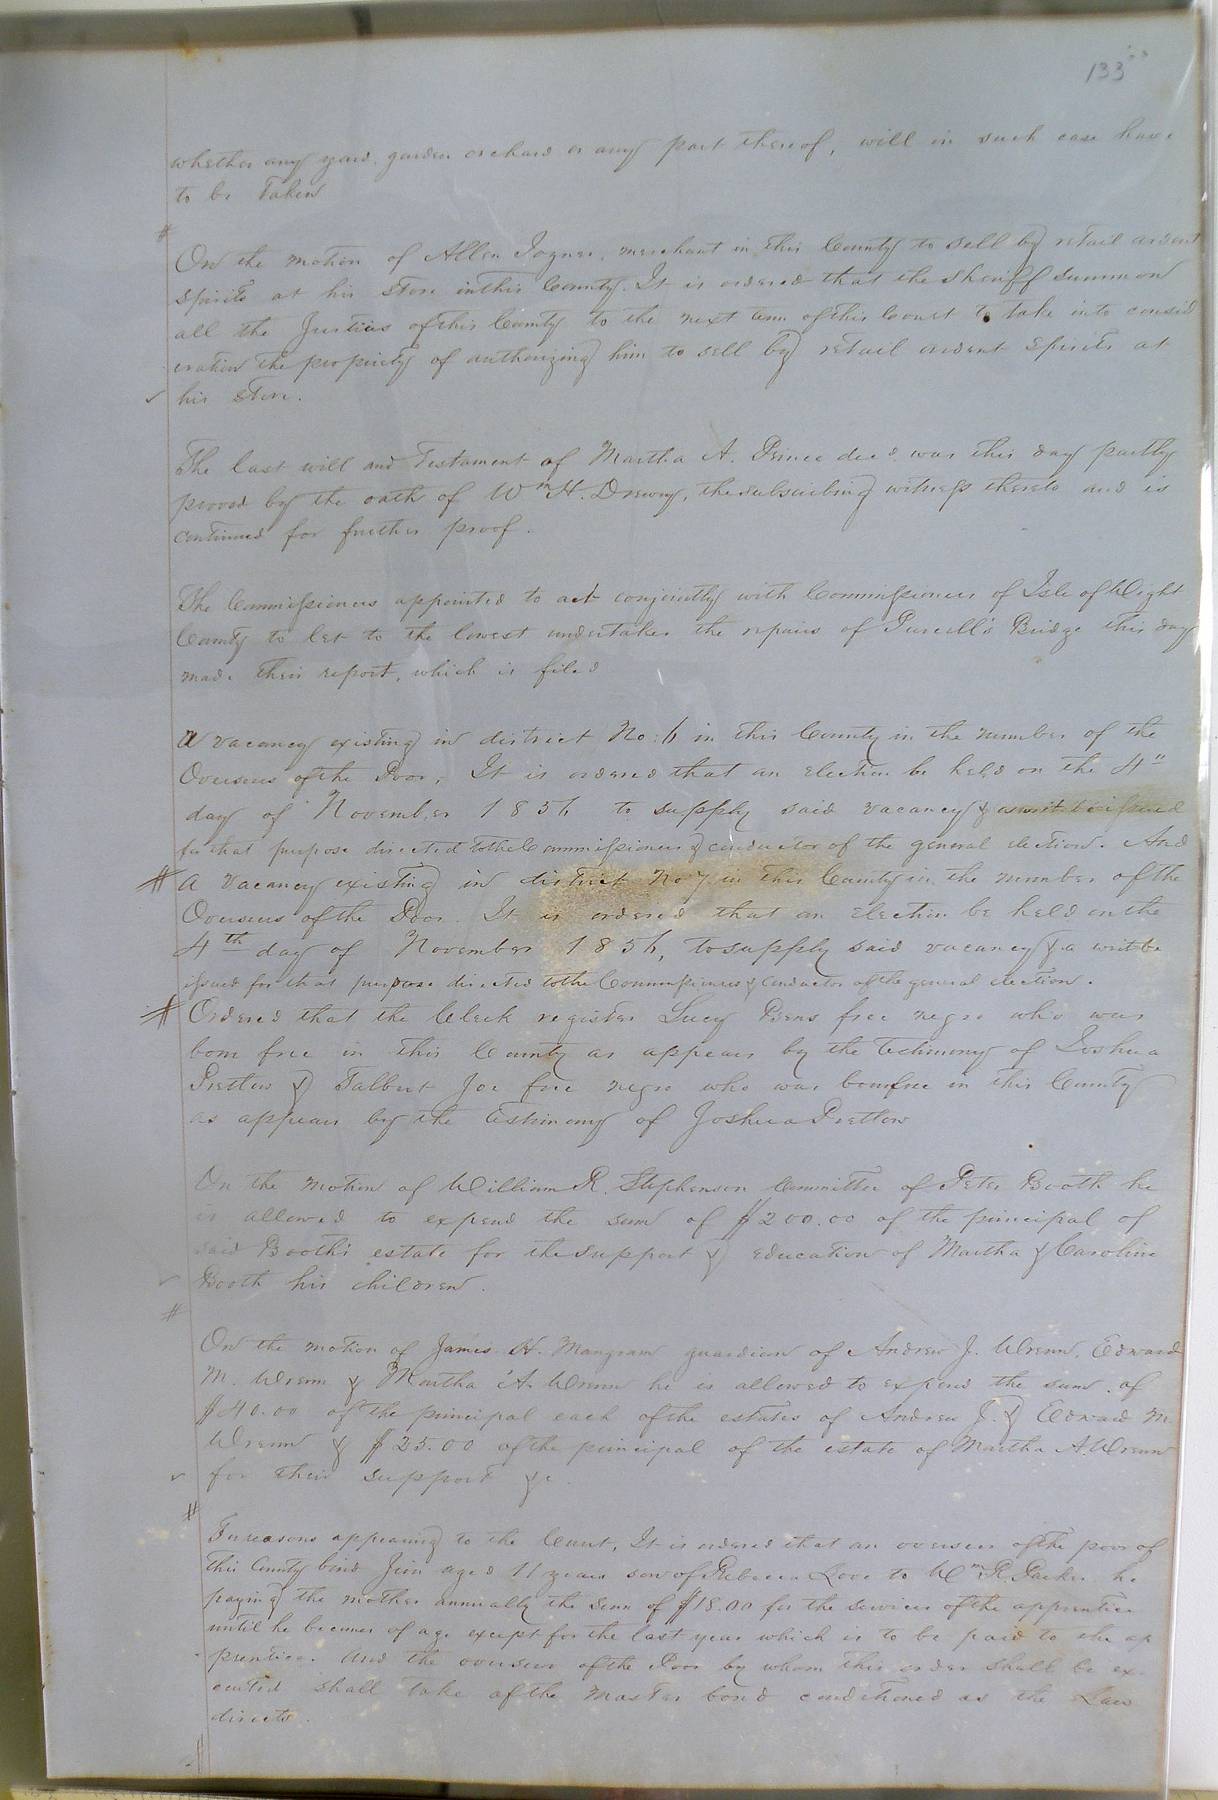 133
whether any yard, garden orchard or any part thereof, will in such case have
to be Taken
#
On the motion of Allen Joyner, merchant in this County to sell by retail ardent
spirits at his store in this County. It is ordered that the sheriff summon
all the Justices of this County to the next term of this Court to take into consid
eration the propriety of authorizing him to sell by retail ardent spirits at
his store.
The last will and Testament of Martha A. Prince decd. was this day partly
proved by the oath of Wm H. Drewry, the subscribing witness thereto and is
continued for further proof.
The Commissioners appointed to act conjointly with Commissioners of Isle of Wight
County to let to the lowest undertaker the repairs of Purcell's Bridge this day
made their report, which is filed
A vacancy existing in district No: 6 in this County in the number of the
Overseers of the Poor, It is ordered that an election be held on the 4"
day of November 1856 to supply said vacancy & a writ be issued
for that purpose directed to the Commissioners & conductor of the general election. And
# a vacancy existing in district No 7 in this County in the number of the
Overseers of the Poor. It is ordered that an election be held on the
4th day of November 1856, to supply said vacancy & a writ be
issued for that purpose directed to the Commissioners & conductor of the general election.
# Ordered that the Clerk register Lucy free negro who was
born free in this County as appears by the testimony of Joshua
Pretlow & Talbert Joe free negro who was born free in this County
as appears by the testimony of Joshua Pretlow
On the motion of William R. Stephenson Committee of Peter Booth he
is allowed to expend the sum of $200.00 of the principal of
said Booth's estate for the support & education of Martha & Caroline
Booth his children.
#
On the motion of James H. Mangram guardian of Andrew J. Wrenn, Edward
M. Wrenn & Martha A. Wrenn he is allowed to expend the sum of
$40.00 of the principal each of the estates of Andrew J. & Edward M.
Wrenn & $25.00 of the principal of the estate of Martha A. Wrenn
for their support &c.
#
For reasons appearing to the Court, It is ordered that an overseer of the poor of
this County bind Jim aged 11 years son of Rebecca Love to Wm R. Parker he
paying the mother annually the sum of $18.00 for the services of the apprentice
until he becomes of age except for the last year which is to be paid to the ap
prentice. And the overseer of the Poor by whom this order shall be ex-
ecuted shall take of the Master bond conditioned as the Law
directs.
#